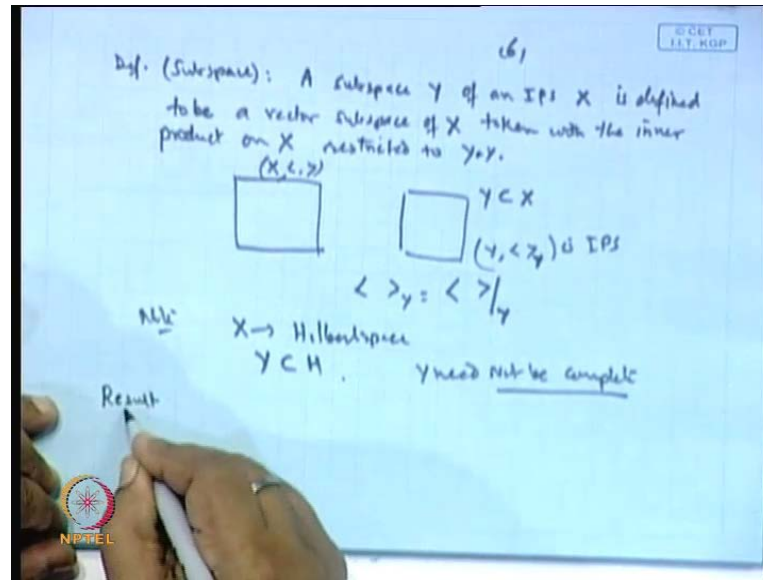 © CET
I.I.T. KGP
Def. (Subspace): A subspace Y of an IPS X is defined
to be a vector subspace of X taken with the inner
product on X restricted to Y×Y.
(X, <, >)
Y ⊂ X
(Y, < >_Y) is IPS
< >_Y = < >/_Y
Note X → Hilbert space
Y ⊂ H. Y need Not be complete
Result
NPTEL